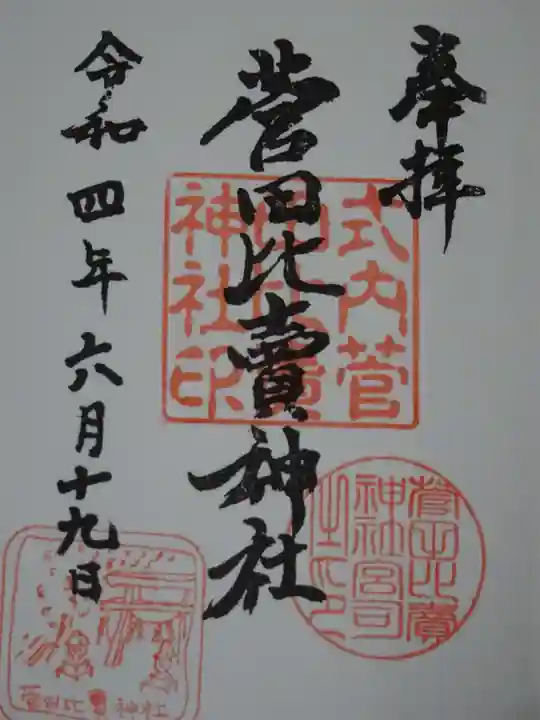 奉拝
菅田比賣神社
令和四年六月十九日
式内菅
田比賣
神社印
菅田比賣
神社宮司
之印
菅田比賣神社